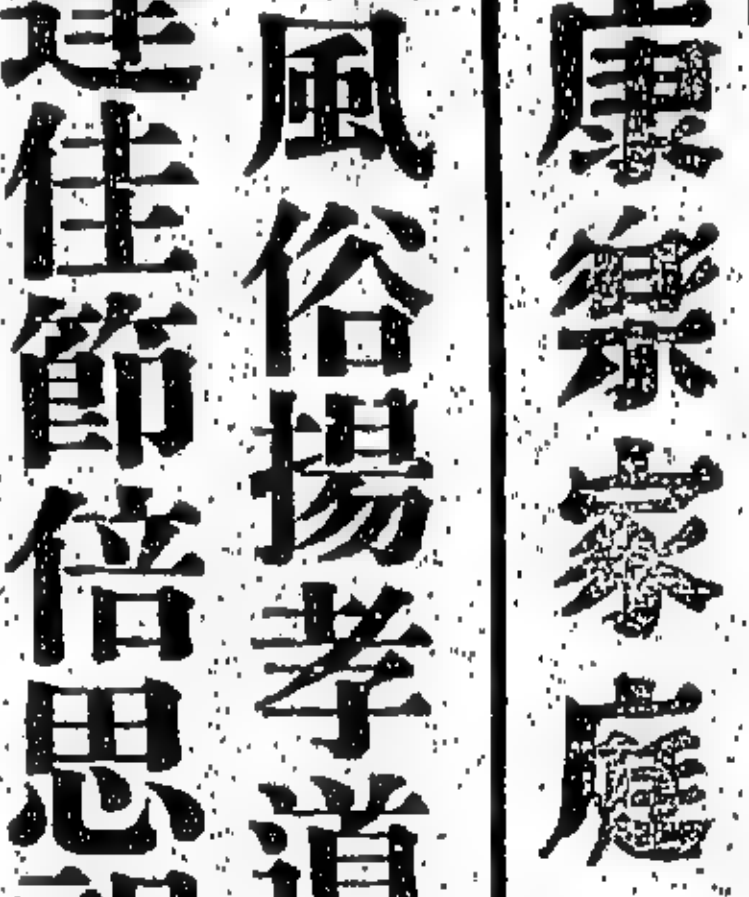 康樂家廳
風俗揚孝道
逢佳節倍思親